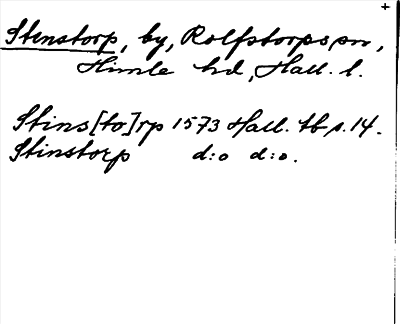 +
Stenstorp, by, Rolfstorps sn,
Himle hd, Hall. l.
Stins[to]rp 1573 Hall. tb s. 14.
Stinstorp d:o d:o.